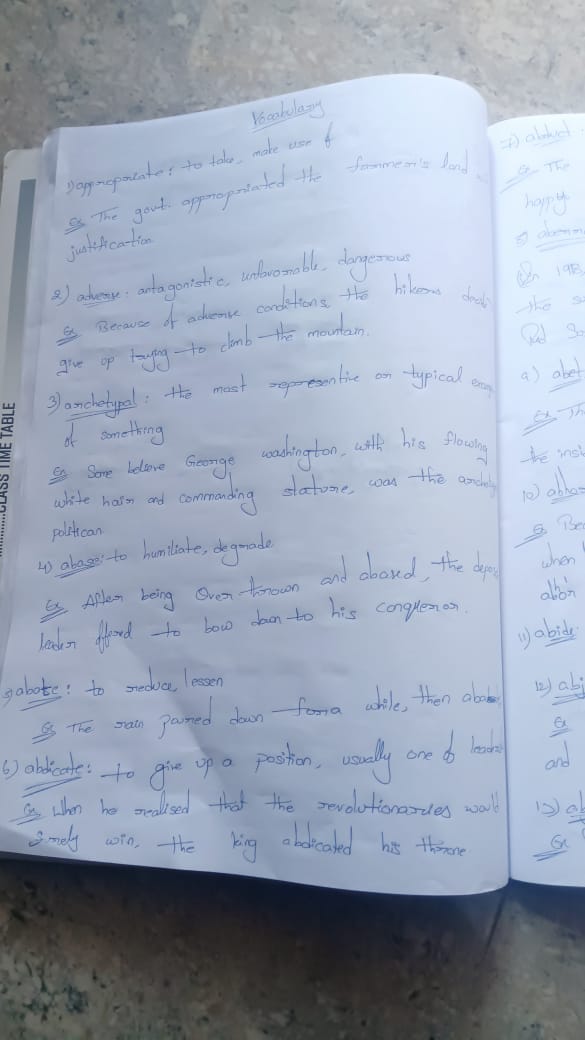 Vocabulary
1) appropriate : to take, make use of
Ex The govt. appropriated the farmmer's land
justification
2) adverse : antagonistic, unfavorable, dangerous
Ex Because of adverse conditions, the hikers
give up trying to climb the mountain.
3) archetypal : the most representive or typical
of something
Ex Some believe George washington, with his flowing
white hair and commanding stature, was the
politican
4) abase : to humiliate, degrade
Ex After being Over thrown and abased, the
leader offered to bow down to his conqueror.
5) abate : to reduce, lessen
Ex The rain poured down for a while, then
6) abdicate : to give up a position, usually one of
Ex when he realised that the revolutionaries would
surely win, the king abdicated his throne
CLASS TIME TABLE
7) abduct
Ex The
happy
8)
In
the
9) abet
Ex
the
10)
Ex
when
11) abide
12)
Ex
and
13)
Ex